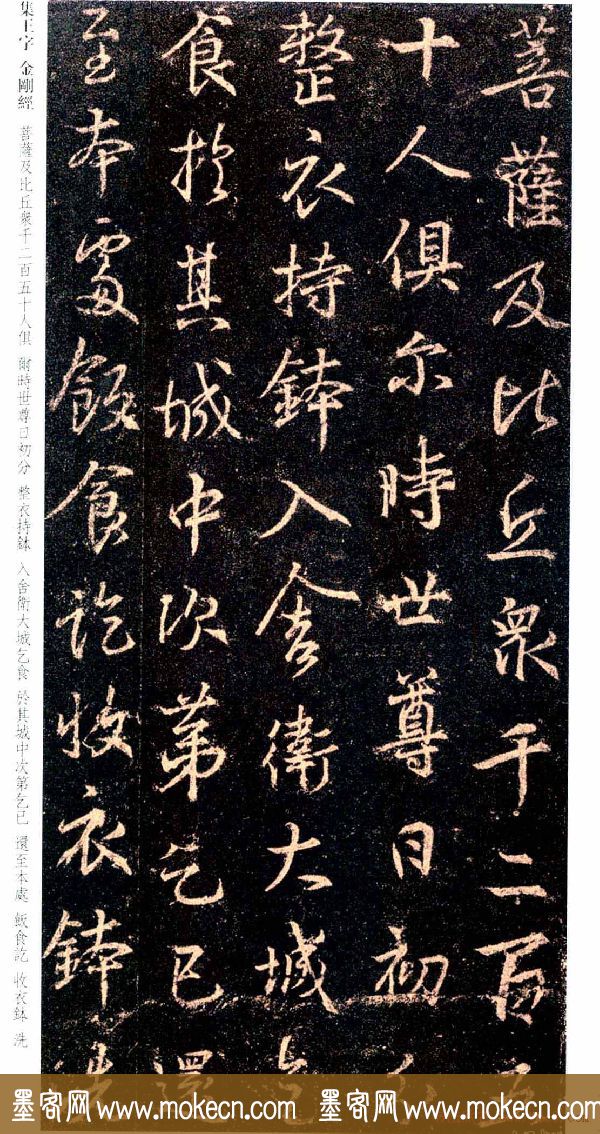 菩薩及比丘衆千二百五
十人俱尔時世尊日初分
整衣持鉢入舍衛大城乞
食於其城中次第乞已還
至本處飯食訖收衣鉢洗
集王字 金剛經 菩薩及比丘衆千二百五十人俱 爾時世尊日初分 整衣持鉢 入舍衛大城乞食 於其城中次第乞已 還至本處 飯食訖 收衣鉢 洗
墨客网 www.mokecn.com 墨客网 www.mokecn.com